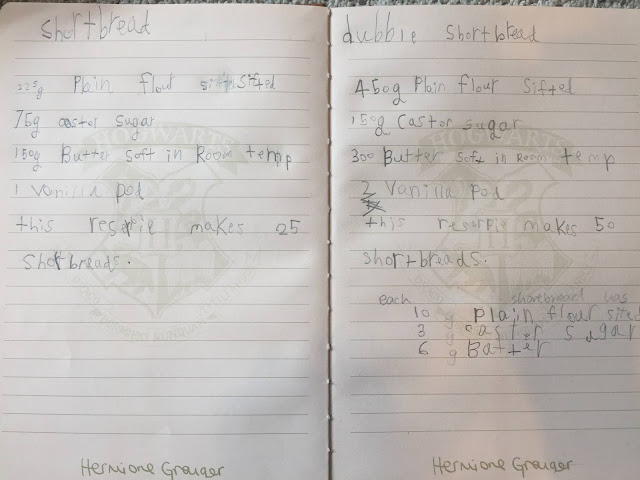 shortbread
225g Plain flour sifted
75g castor sugar
150g Butter soft in Room temp
1 Vanilla pod
this makes 25
shortbreads.
HOGWARTS
Hermione Granger
dubble shortbread
450g Plain flour sifted
150g Castor sugar
300 Butter soft in Room temp
2 Vanilla pod
this makes 50
shortbreads.
each shortbread has
10 g Plain flour sifted
3 g caster sugar
6 g Butter
HOGWARTS
Hermione Granger